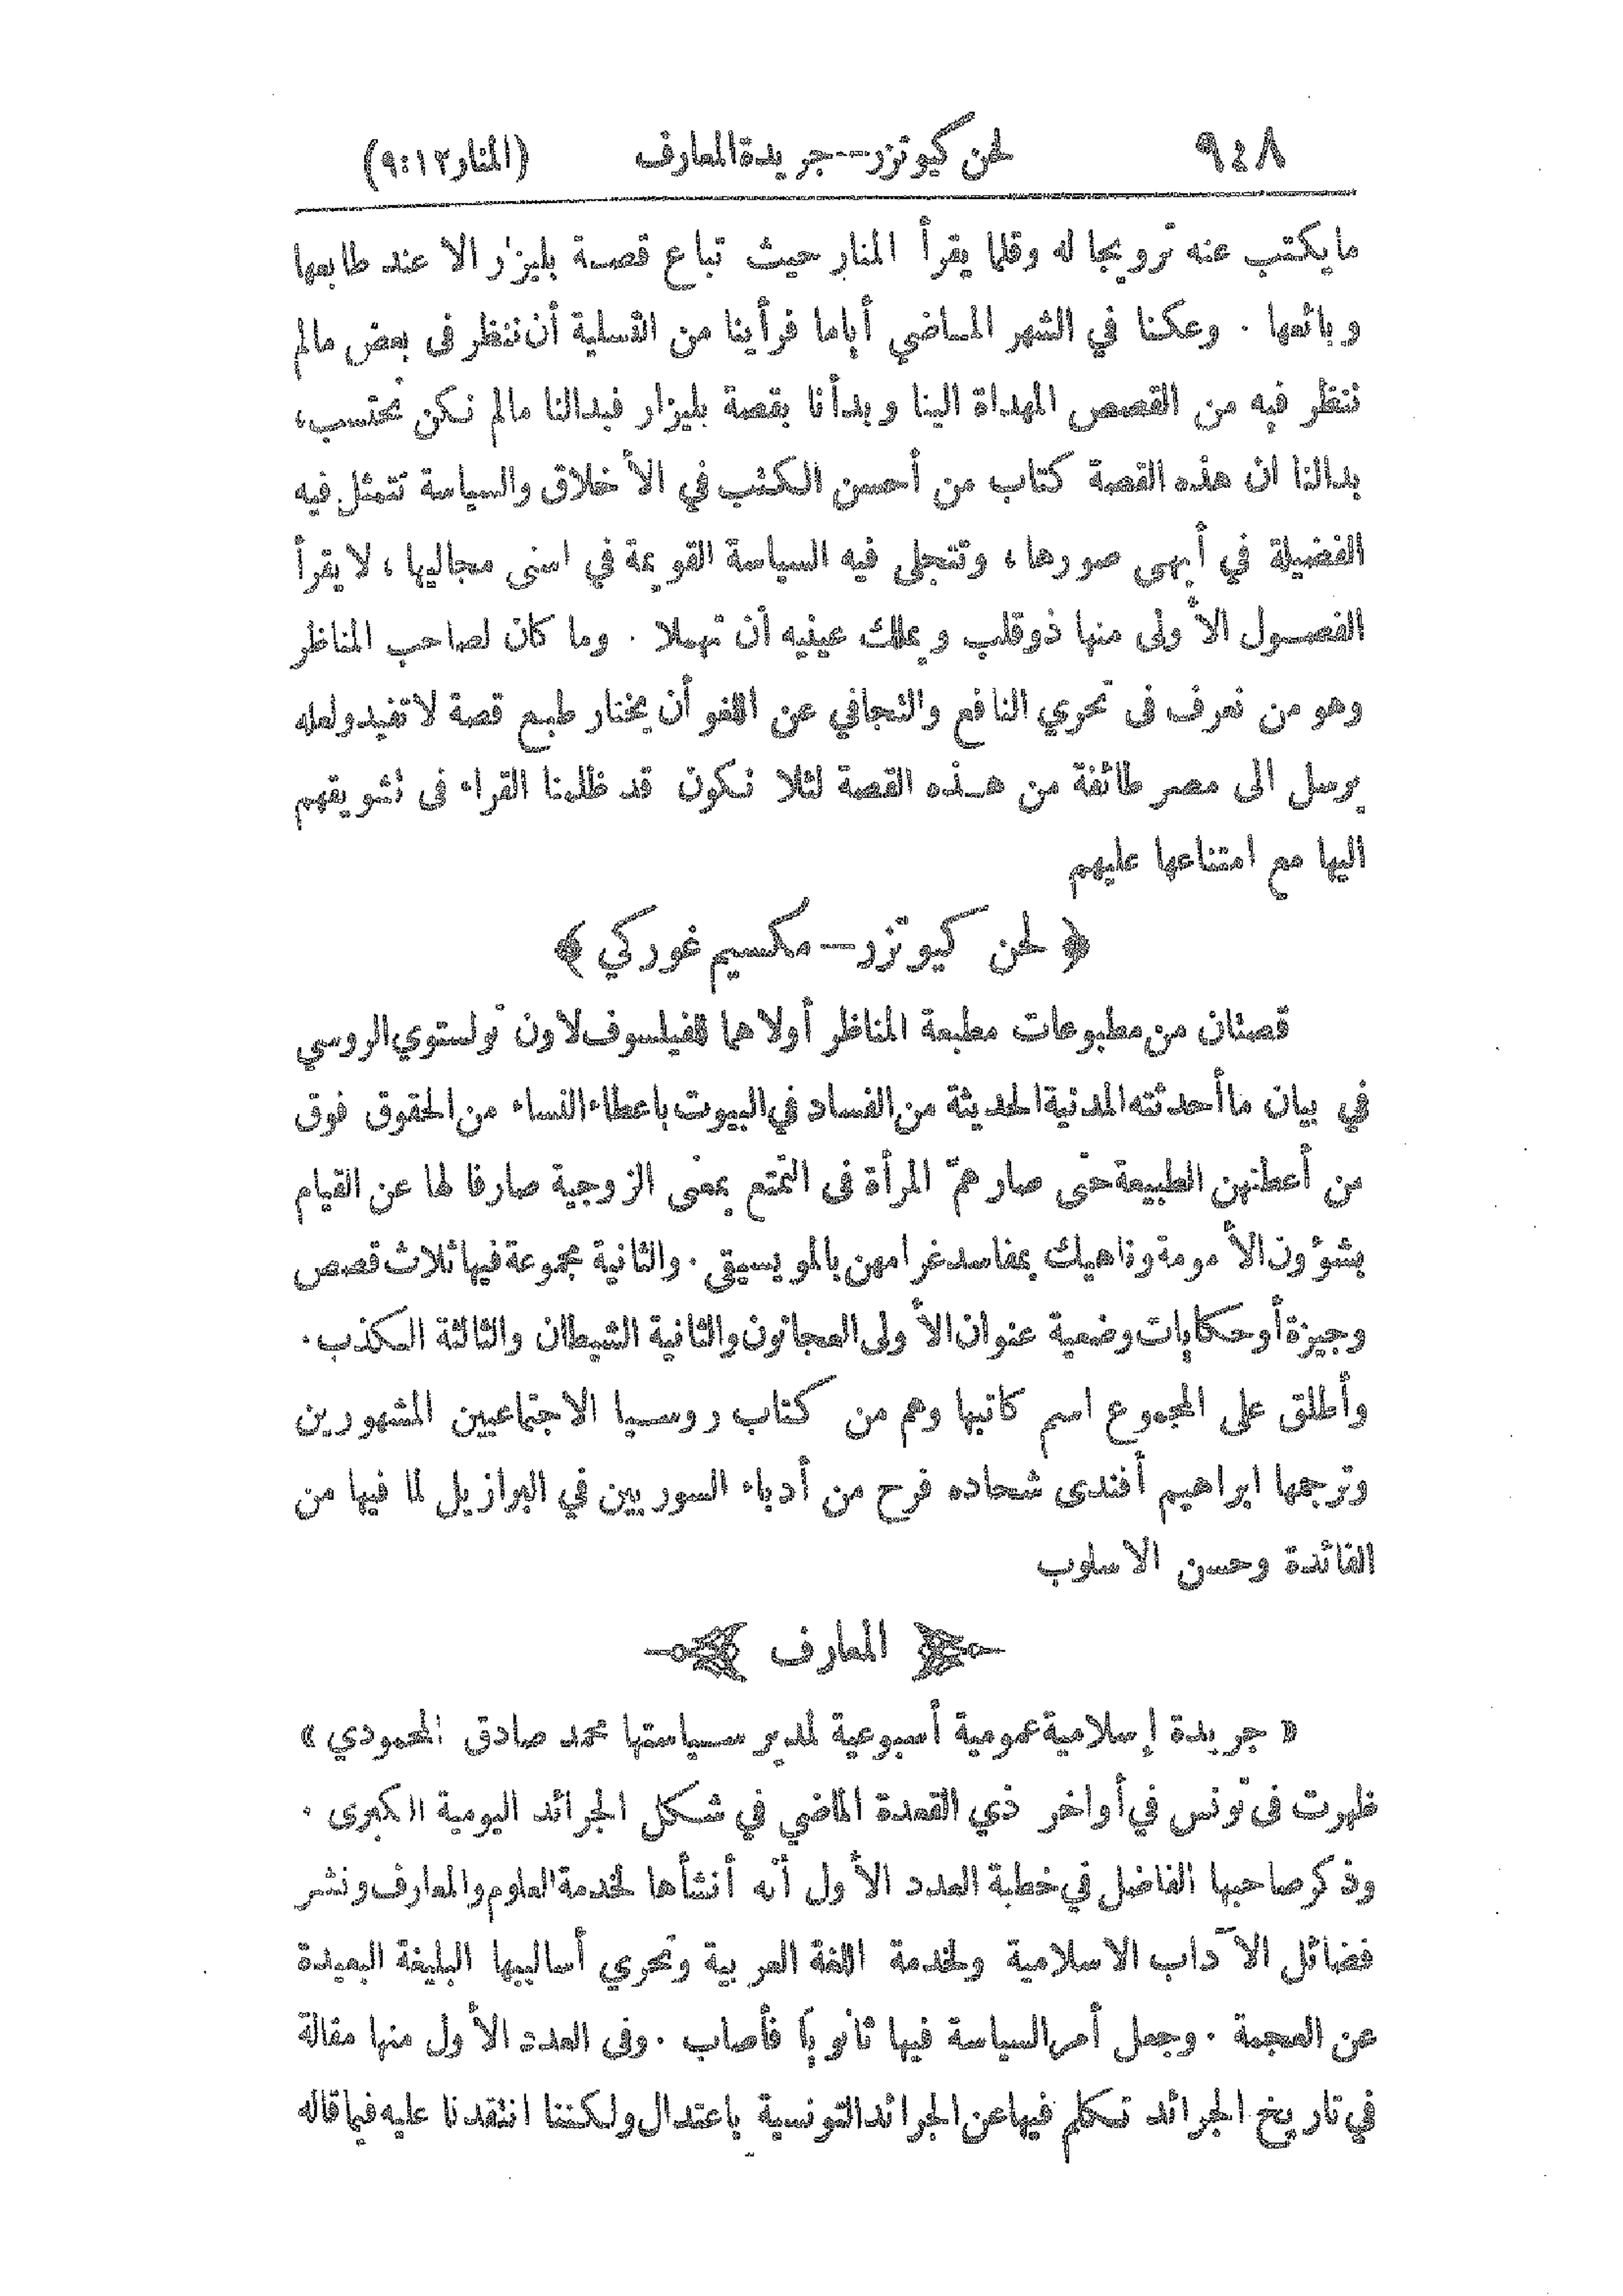 ٩٤٨ لحن كيوتزر--جريدة المعارف (المنار ١٢:٩)
ما يكتب عنه ترويجا له وقلما يقرأ المنار حيث تباع قصة بليزار الا عند طابعها
وبائعها . وعكنا في الشهر الماضي أياما فرأينا من التسلية أن ننظر فى بعض مالم
ننظر فيه من القصص المهداة الينا وبدأنا بقصة بليزار فبدالنا مالم نكن نحتسب،
بدالنا ان هذه القصة كتاب من أحسن الكتب في الأخلاق والسياسة تتمثل فيه
الفضيلة في أبهى صورها، وتتجلى فيه السياسة القويمة في اسنى مجاليها، لا يقرأ
الفصول الأولى منها ذو قلب ويملك عينيه أن تهملا . وما كان لصاحب المناظر
وهو من نعرف فى تحري النافع والتجافي عن اللغو أن يختار طبع قصة لا تفيد ولعله
يرسل الى مصر طائفة من هذه القصة لئلا نكون قد ظلمنا القراء فى تشويقهم
اليها مع امتناعها عليهم
﴿ لحن كيوتزر -- مكسيم غوركي ﴾
قصتان من مطبوعات مطبعة المناظر أولاهما للفيلسوف لاون تولستوي الروسي
في بيان ما أحدثته المدنية الحديثة من الفساد في البيوت باعطاء النساء من الحقوق فوق
من أعطتهن الطبيعة حتى صار همّ المرأة فى التمتع بمعنى الزوجية صارفا لها عن القيام
بشؤون الأمومة وناهيك بمفاسد غرامهن بالمويسيقى. والثانية مجموعة فيها ثلاث قصص
وجيزة أو حكايات وضعية عنوان الأولى العجائون والثانية الشيطان والثالثة الكذب.
وأطلق على المجموع اسم كاتبها وهم من كتاب روسيا الاجتماعيين المشهورين
وترجمها ابراهيم أفندى شحاده فرح من أدباء السوريين في البرازيل لما فيها من
الفائدة وحسن الاسلوب
المعارف
« جريدة إسلامية عمومية أسبوعية لمدير سياستها محمد صادق المحمودي »
ظهرت فى تونس في أواخر ذي القعدة الماضي في شكل الجرائد اليومية الكبرى .
وذكر صاحبها الفاضل في خطبة العدد الأول أنه أنشأها لخدمة العلوم والمعارف ونشر
فضائل الآداب الاسلامية ولخدمة اللغة العربية وتحري أساليبها البليغة البعيدة
عن العجمة . وجعل أمر السياسة فيها ثانويا فأصاب . وفى العدد الأول منها مقالة
في تاريخ الجرائد تكلم فيها عن الجرائد التونسية باعتدال ولكننا انتقدنا عليه فيما قاله